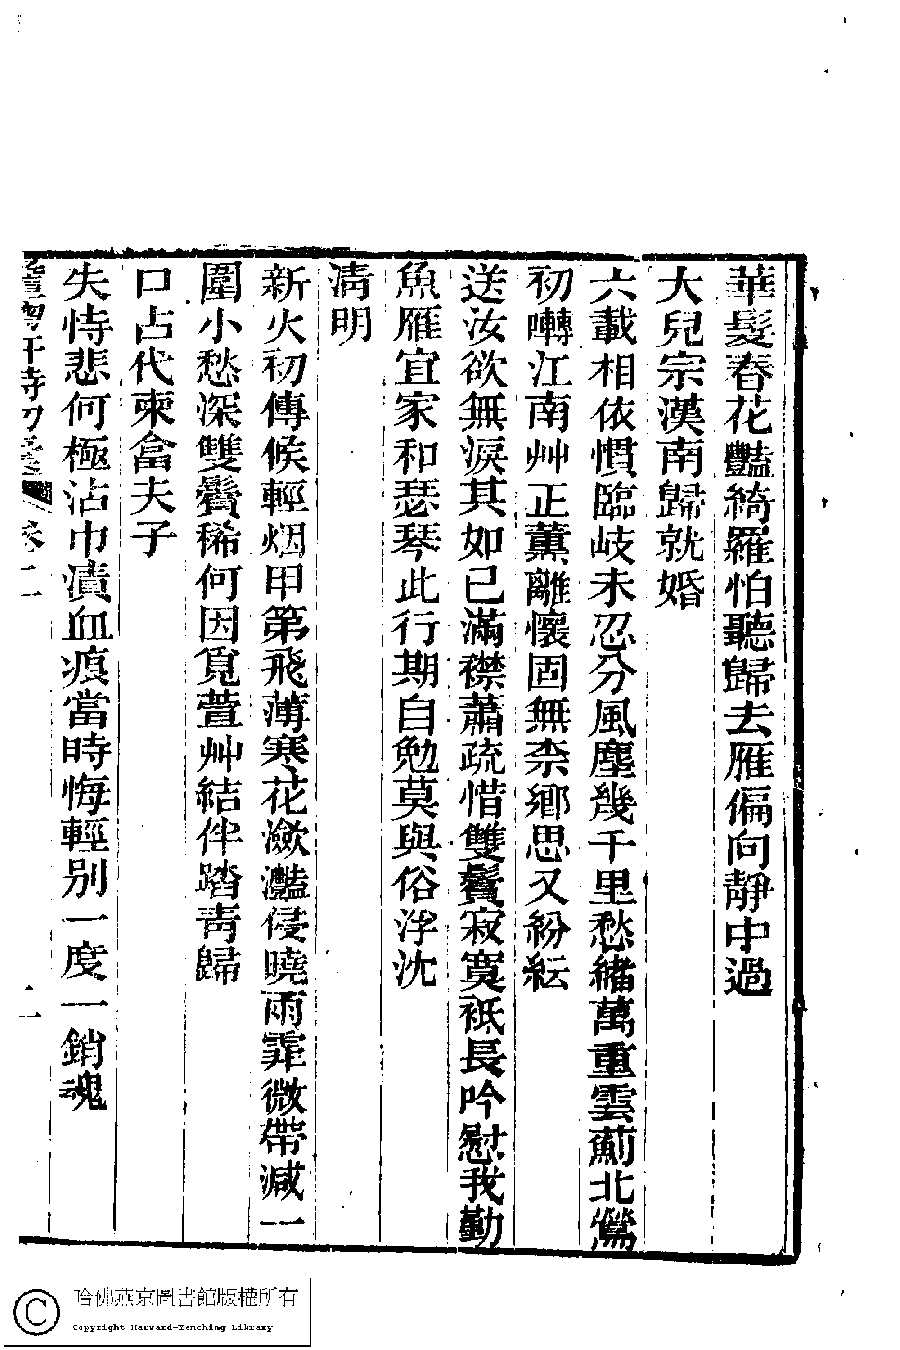 華髮春花豔綺羅怕聽歸去雁偏向靜中過
大兒宗漢南歸就婚
六載相依慣臨岐未忍分風塵幾千里愁緒萬重雲薊北鶯
初囀江南艸正薰離懷固無柰鄉思又紛紜
送汝欲無淚其如已滿襟蕭疏惜雙鬢寂寞衹長吟慰我勤
魚雁宜家和瑟琴此行期自勉莫與俗浮沈
清明
新火初傳候輕烟甲第飛薄寒花瀲灩侵曉雨霏微帶減一
圍小愁深雙鬢稀何因覓萱艸結伴踏青歸
口占代柬畣夫子
失恃悲何極沾巾漬血痕當時悔輕別一度一銷魂
卷二
二
哈佛燕京圖書館版權所有
Copyright Harvard-Yenching Library